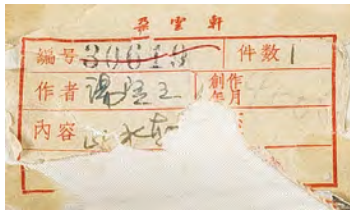 朵雲軒
編号 30619 件数 1
作者 湯 創作年月
内容 山水